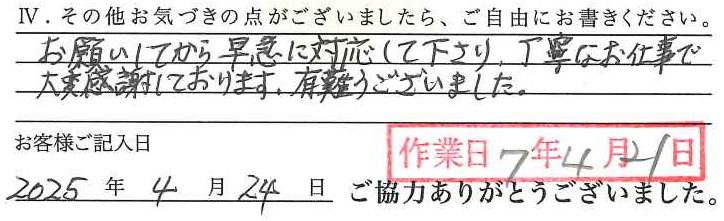 Ⅳ．その他お気づきの点がございましたら、ご自由にお書きください。
お願いしてから早急に対応して下さり、丁寧なお仕事で
大変感謝しております。有難うございました。
お客様ご記入日
作業日 7年4月21日
2025 年 4 月 24 日 ご協力ありがとうございました。